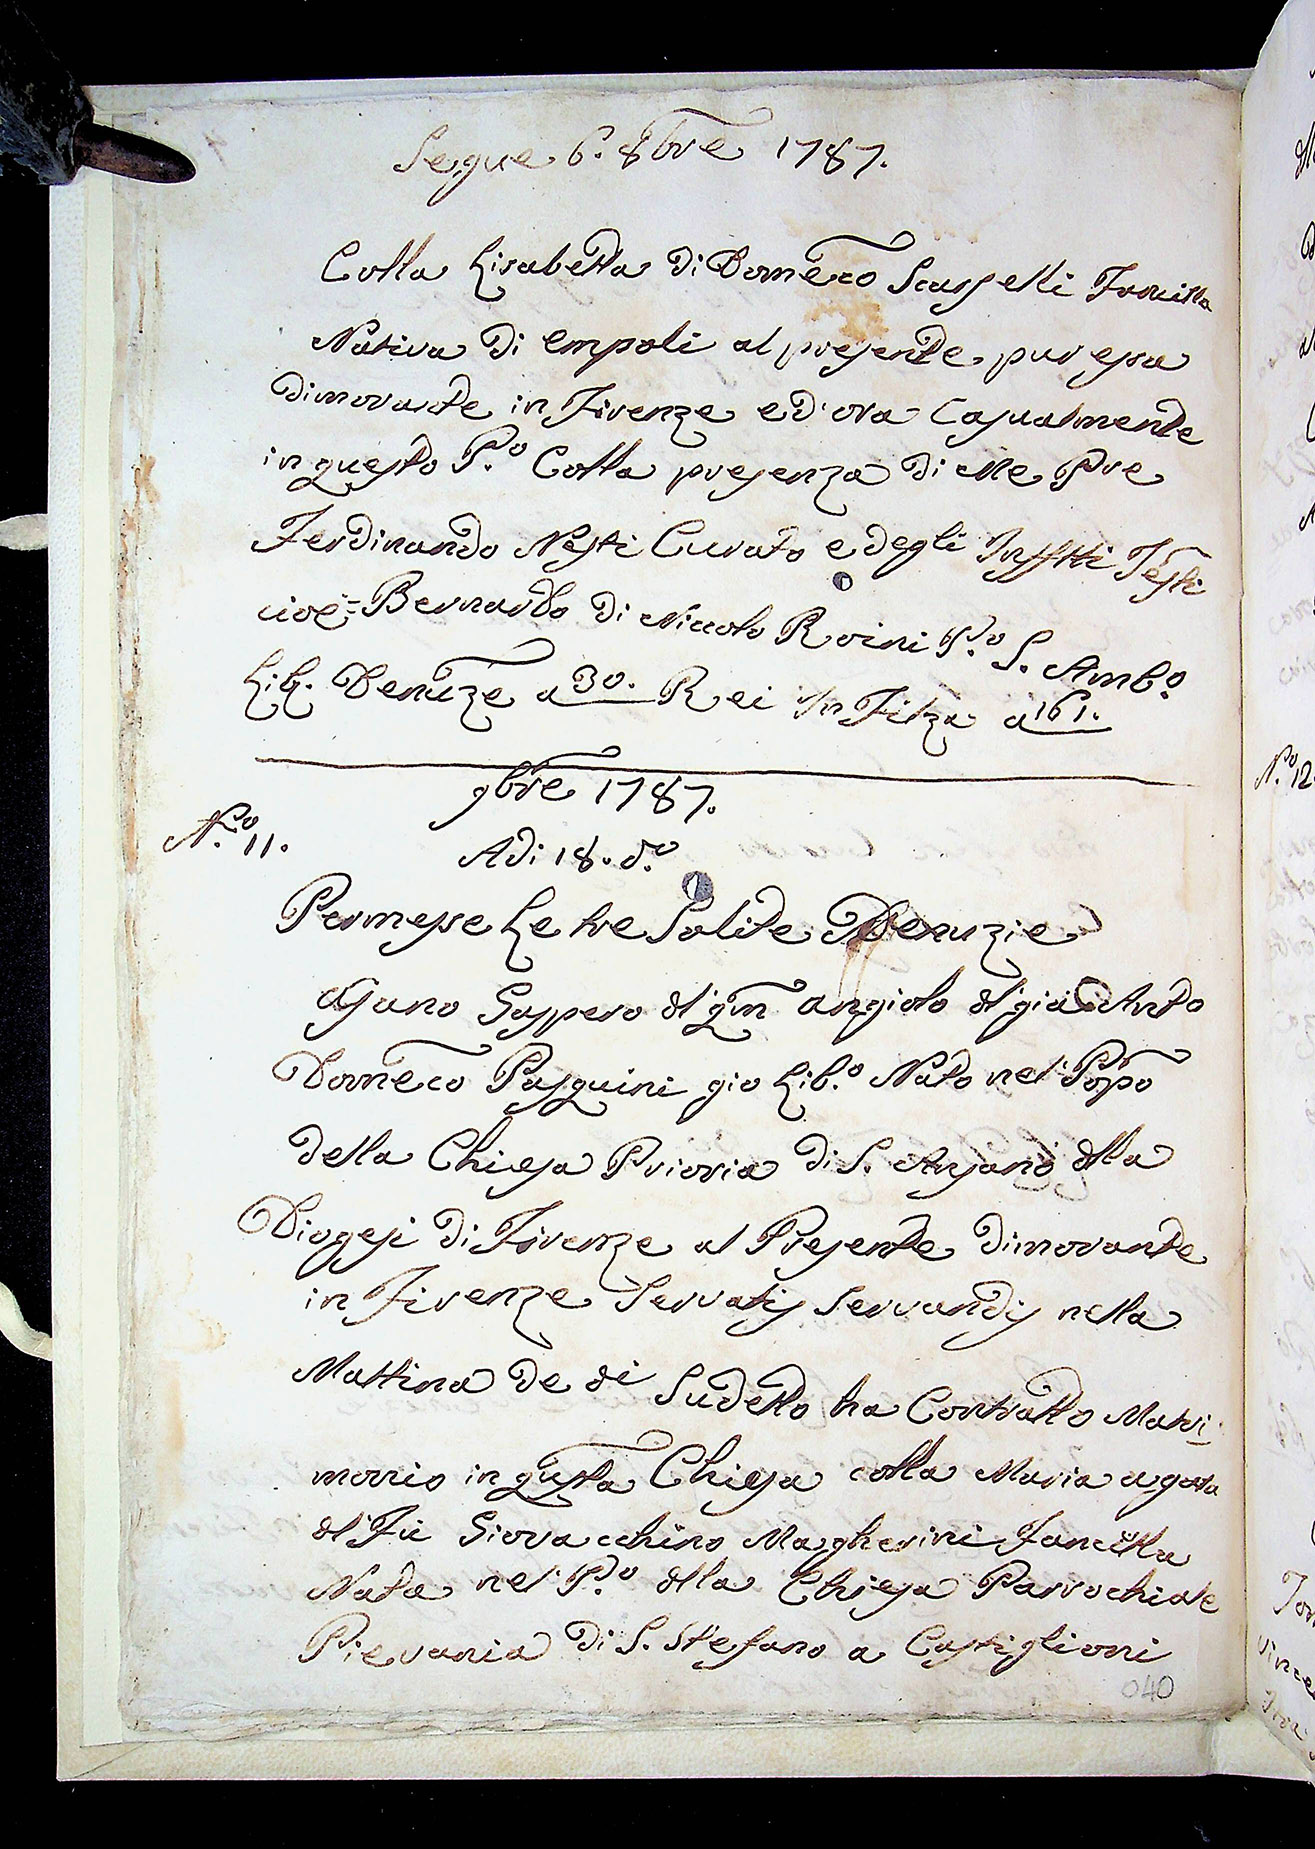 Segue 6. 8bre 1787.
Colla Lisabetta di Domeco Scappelli Fanciulla
Nativa di Empoli al presente pur essa
dimorante in Firenze e d'ora Casualmente
in questo P.o Colla presenza di Me Pre
Ferdinando Nesti Curato e degli Infftti Testi
cioè: Bernardo di Niccolo Roini P.o S. Amb.o
Lib. Denuzze a 30. Rei In Filza a 161.
9bre 1787.
N.o 11.
Adi 18. d.o
Permesse Le tre Solite Denuzie
Gaspero dl qm angiolo dl già Anto
Domeco Pasquini gio Lib.o Nato nel Popo
della Chiesa Prioria di S. Ansano dlla
Diogesi di Firenze al Presente dimorante
in Firenze Servatis Servandis nella
Mattina de di Sudetto ha Contratto Matri
monio in qusta Chiesa colla Maria agata
dl Fù Giovacchino Magherini Fanciulla
Nata nel P.o dlla Chiesa Parrochiale
Pievania di S. Stefano a Castiglioni
040
N.o 12